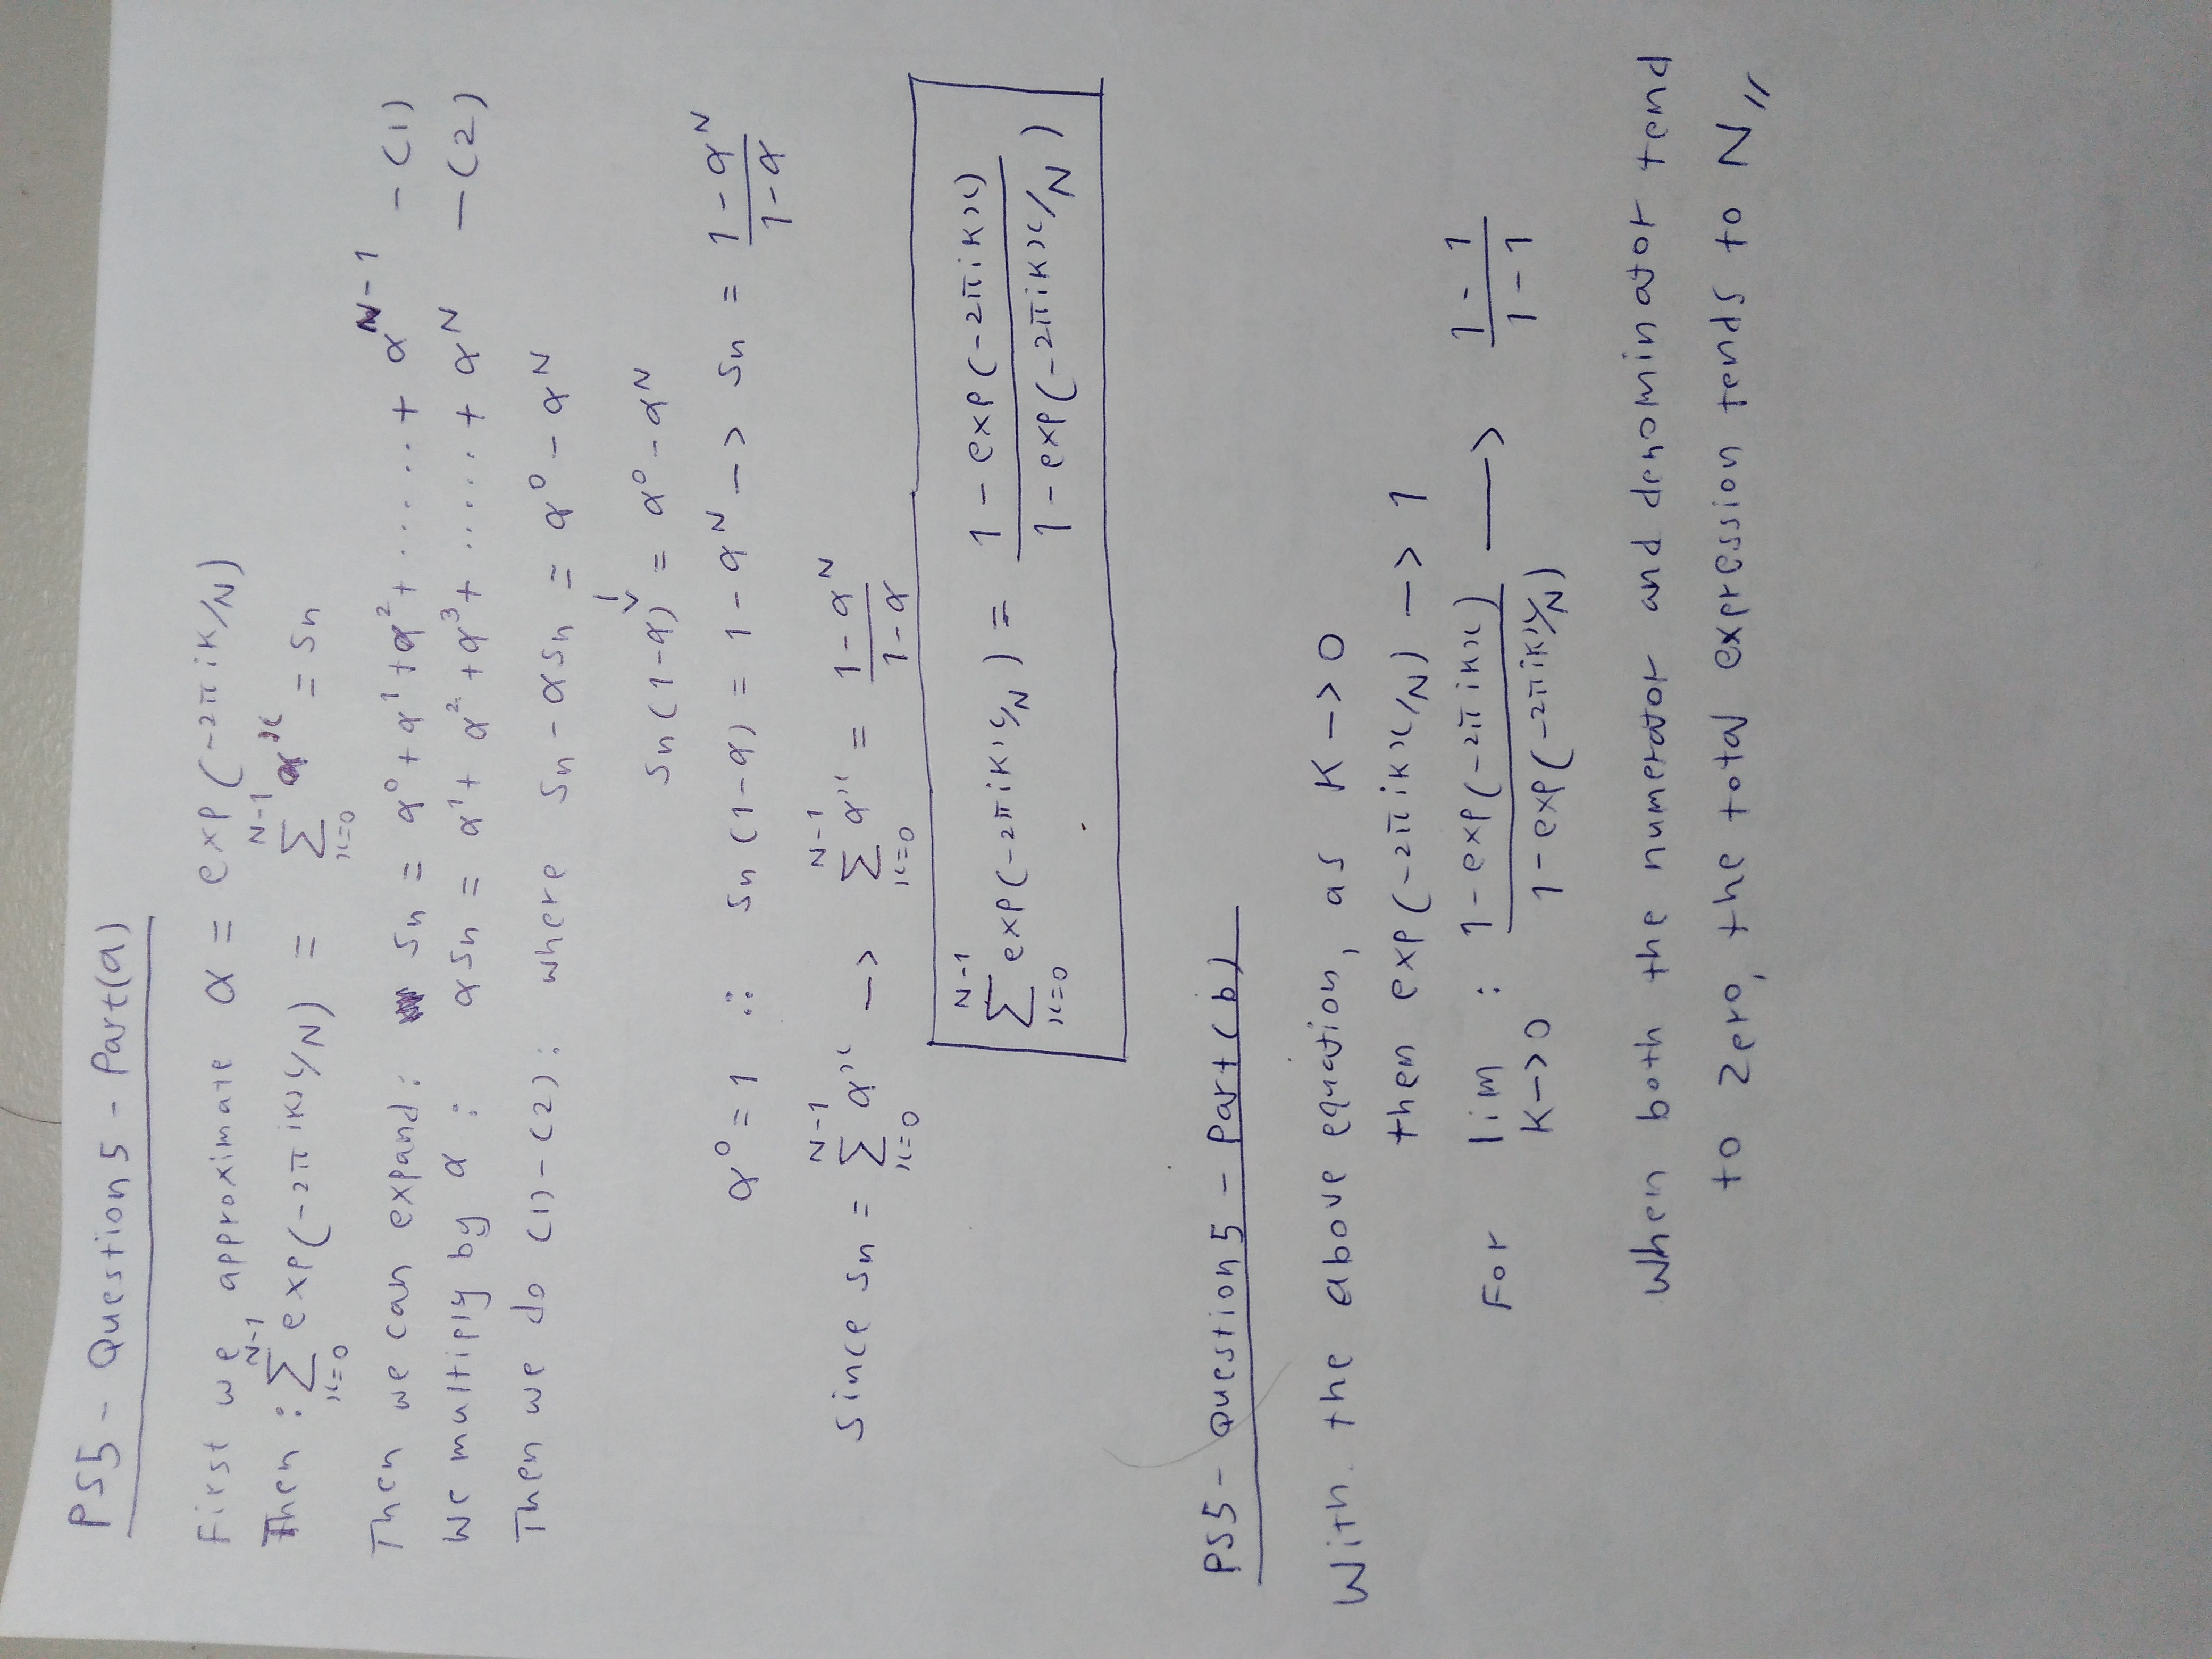 PS5 - Question 5 - Part(a)
First we approximate α = exp(-2πik/N)
Then : ∑_{x=0}^{N-1} exp(-2πikx/N) = ∑_{x=0}^{N-1} α^x = Sn
Then we can expand: Sn = α^0 + α^1 + α^2 + ...... + α^{N-1} - (1)
We multiply by α : αSn = α^1 + α^2 + α^3 + ..... + α^N - (2)
Then we do (1)-(2): where Sn - αSn = α^0 - α^N
↓
Sn(1-α) = α^0 - α^N
α^0 = 1 ∴ Sn(1-α) = 1 - α^N -> Sn = (1-α^N)/(1-α)
Since Sn = ∑_{x=0}^{N-1} α^x -> ∑_{x=0}^{N-1} α^x = (1-α^N)/(1-α)
∑_{x=0}^{N-1} exp(-2πikx/N) = (1 - exp(-2πikx))/(1 - exp(-2πikx/N))
PS5 - Question 5 - Part(b)
With the above equation, as K -> 0
then exp(-2πikx/N) -> 1
For lim_{K->0} : (1 - exp(-2πikx))/(1 - exp(-2πikx/N)) -> (1-1)/(1-1)
When both the numerator and denominator tend
to zero, the total expression tends to N //